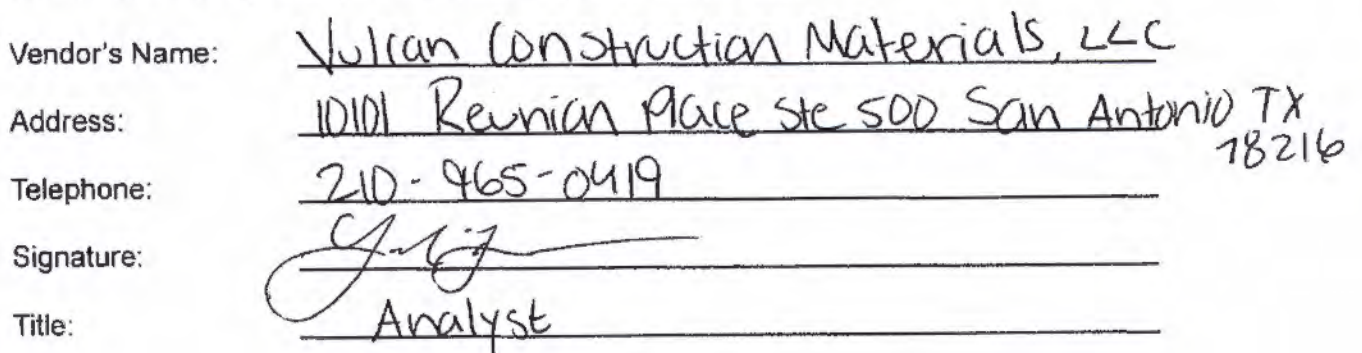 Vendor's Name: Vulcan Construction Materials, LLC
Address: 10101 Reunion Place Ste 500 San Antonio TX
78216
Telephone: 210-965-0419
Signature:
Title: Analyst